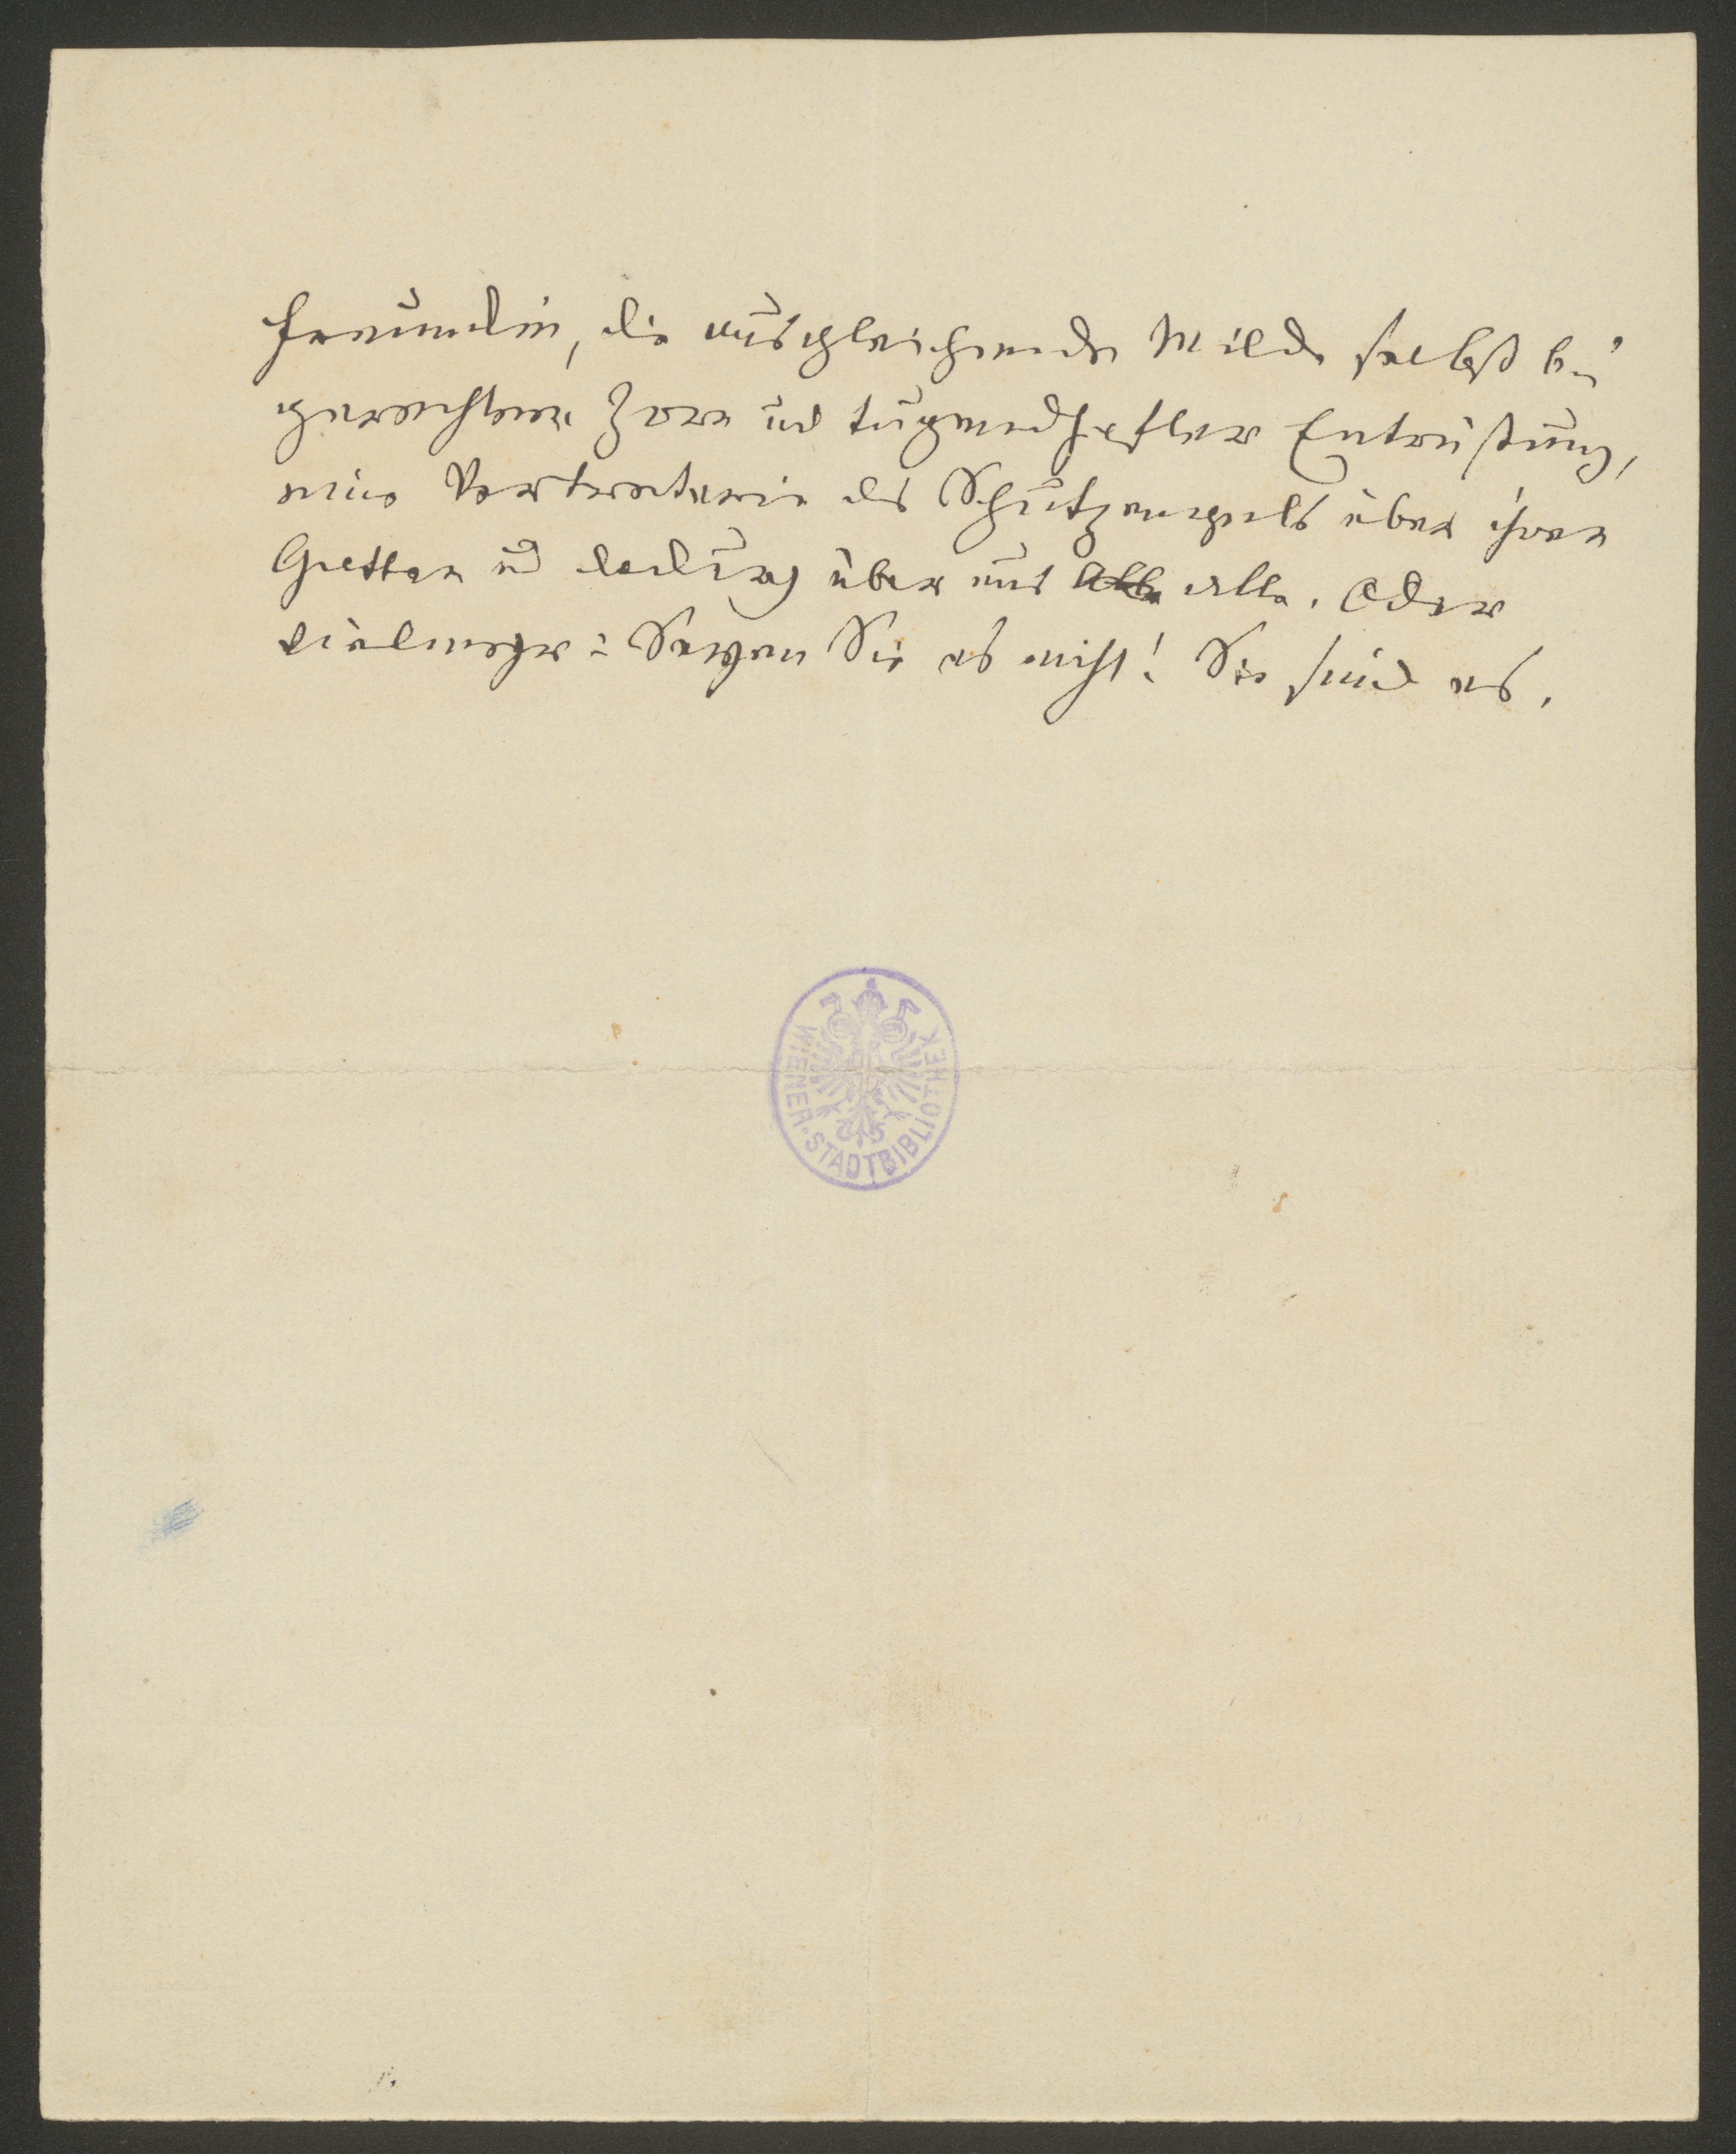 Freundin, die ausgleichende Milde selbst bei
gerechtem Zorn und tugendhafter Entrüstung,
eine Vertreterin des Schutzengels über ihren
Gatten und dadurch über uns alle. Oder
vielmehr: Seyen Sie es nicht! Sie sind es.
WIENER·STADTBIBLIOTHEK